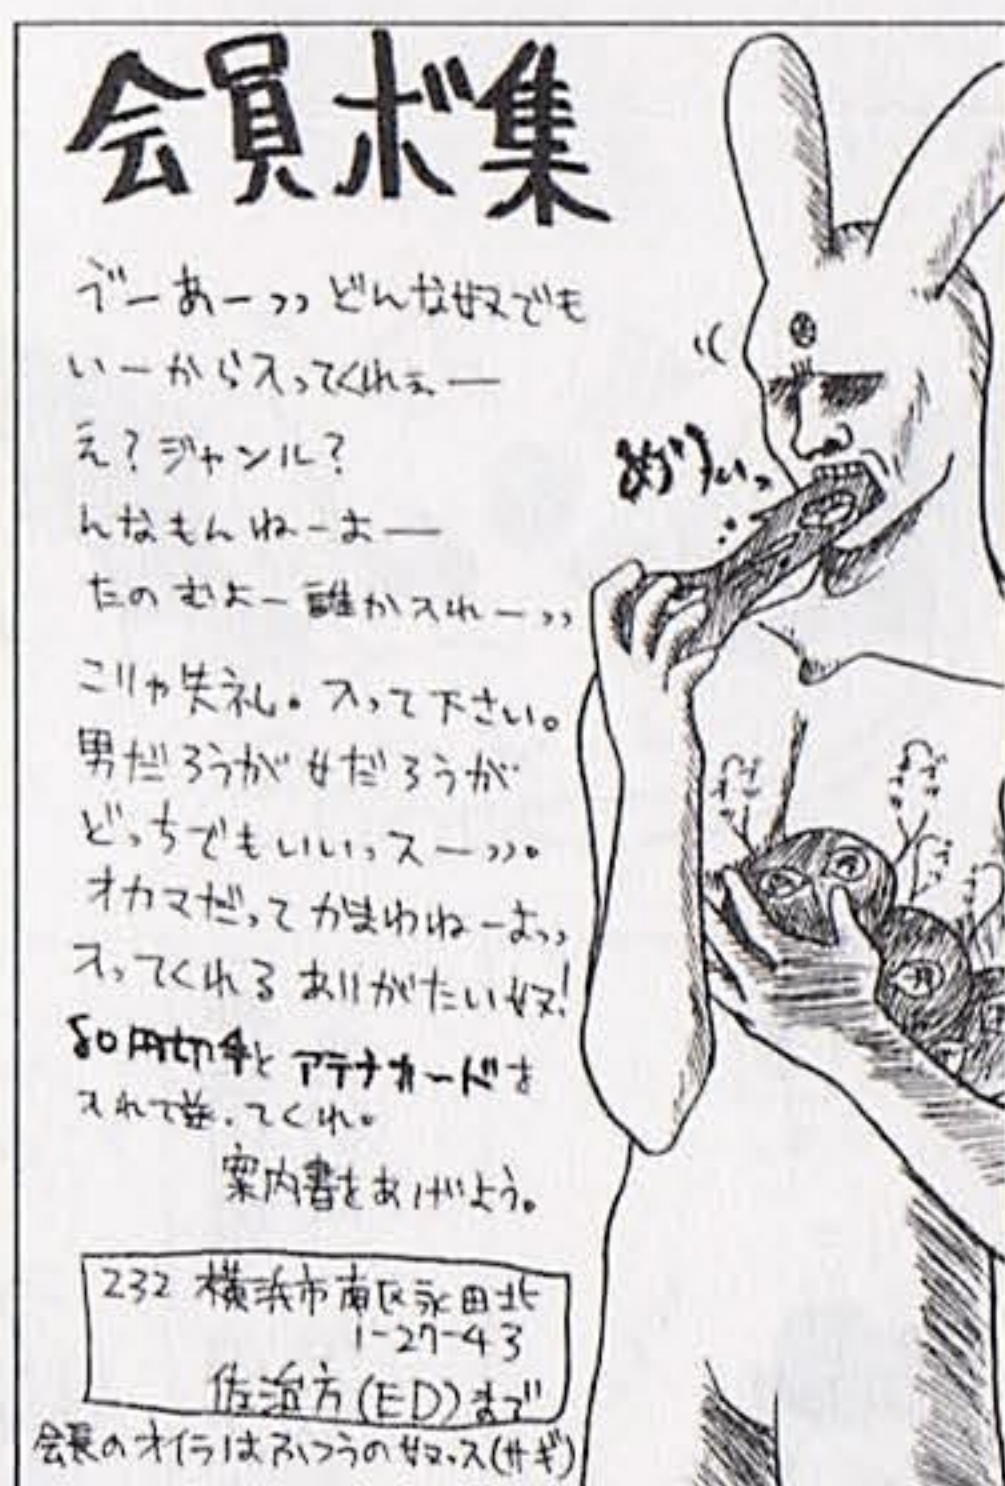 会員ボ集
ゔーあーッッどんな奴でも
いーから入ってくれぇー
え?ジャンル?
んなもんねーよー
たのむよー誰か入れーッッ
こりゃ失礼。入って下さい。
男だろうが女だろうが
どっちでもいいっスーッッ。
オカマだってかまわねーよッッ
入ってくれるありがたい奴!
80円切手とアテナカードを
入れて送ってくれ。
案内書をあげよう。
232 横浜市南区永田北
1-27-43
方(ED)まで
会長のオイラはふつうの奴っス(サギ)